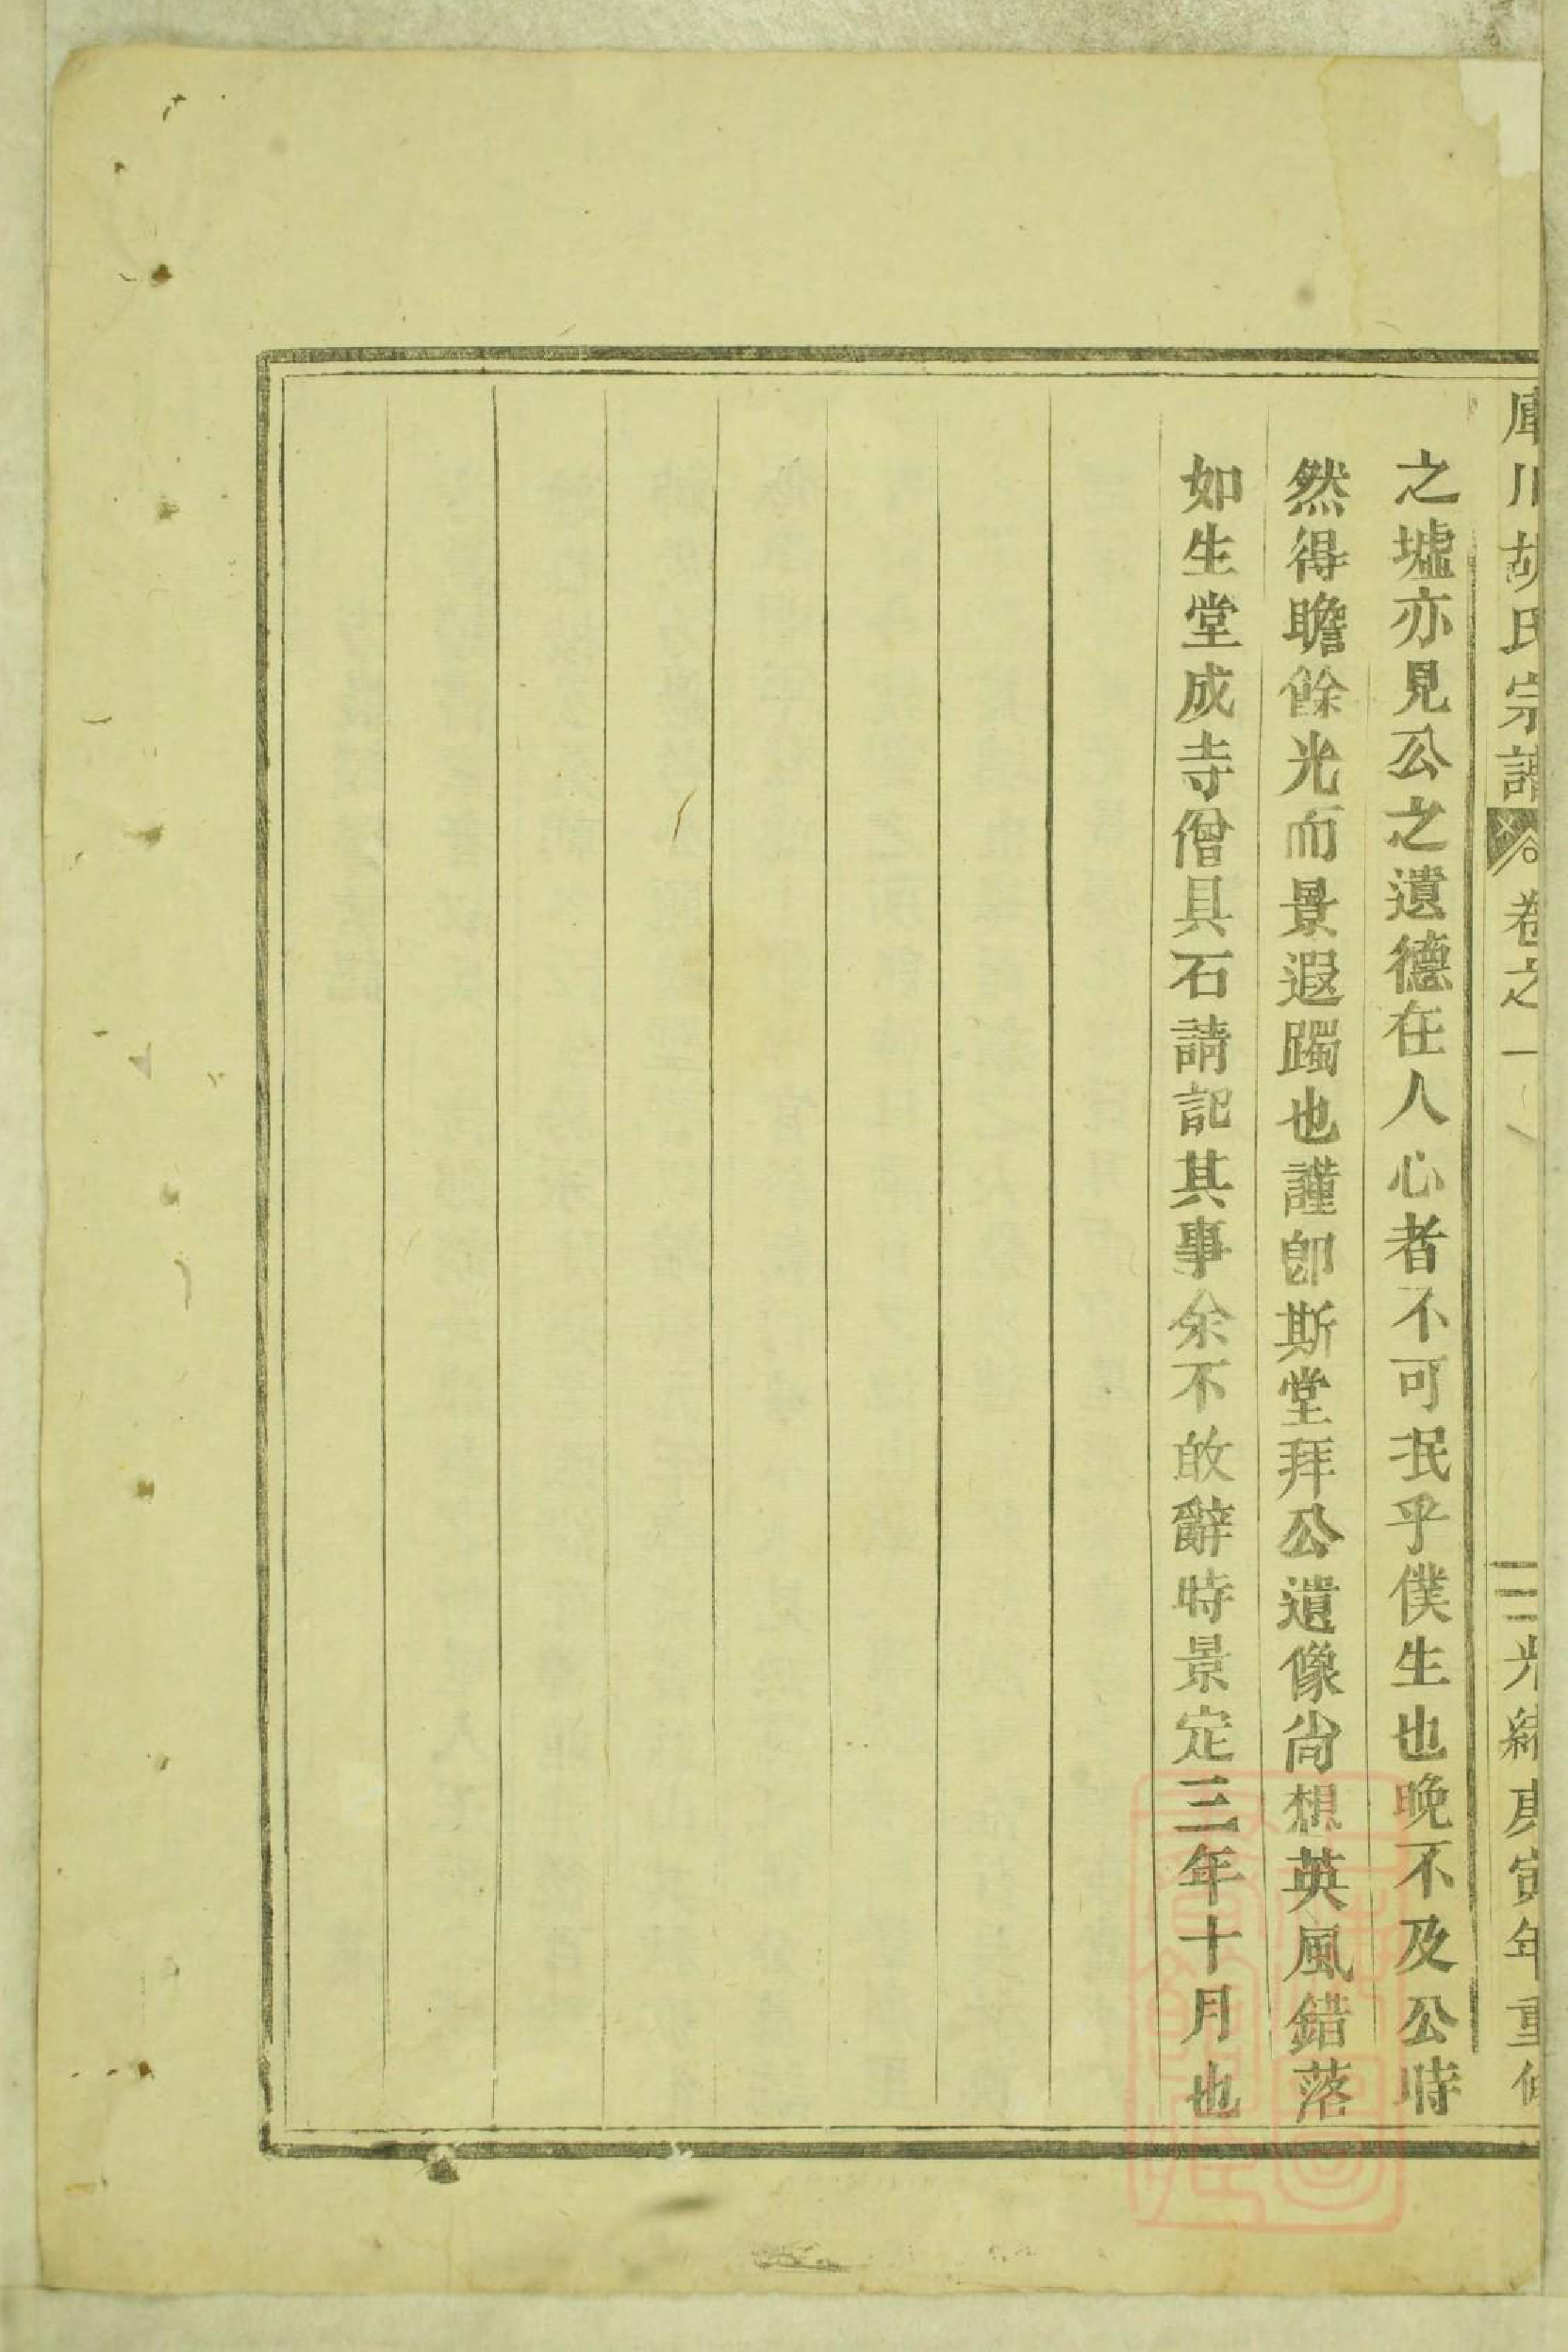 庫川胡氏宗譜 卷之一 三 光緒庚寅年重修
之墟亦見公之遺德在人心者不可泯乎僕生也晚不及公時
然得瞻餘光而景遐躅也謹卽斯堂拜公遺像尙想英風錯落
如生堂成寺僧具石請記其事余不敢辭時景定三年十月也